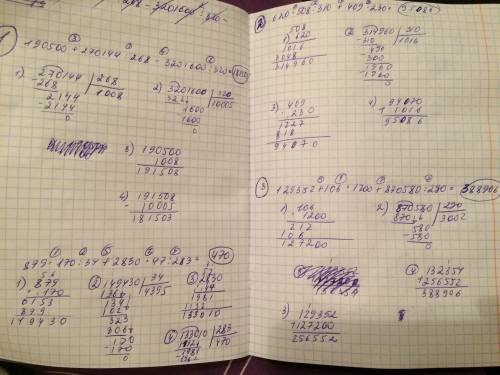 190500 + 270144 : 268 - 3201600 : 320 =
1) 270144 | 268
- 268 | 1008
2144
- 2144
0
2) 3201600 | 320
1600 | 10005
1600
0
3) 190500
1008
191508
4) 191508
- 10005
181503
879 · 170 : 34 + 2830 · 47 : 283 = 470
1) 879
170
6153
879
149430
2) 149430 | 34
136 | 4395
134
102
323
306
170
- 170
0
3) 2830
1981
1132
133010
4) 133010 | 283
1132 | 470
- 1981
2) 620 · 508 : 310 + 409 · 230 = 95086
1) 508
620
1016
3048
314960
2) 314960 | 310
- 310 | 1016
0
3) 409
230
1227
818
94070
4) 94070
1016
95086
3) 129352 + 106 · 1200 + 870580 : 290 = 388906
1) 106
1200
212
106
127200
2) 870580 | 290
870 | 3002
580
- 580
0
3) 129352
+ 127200
256552
4) 132354
256552
388906